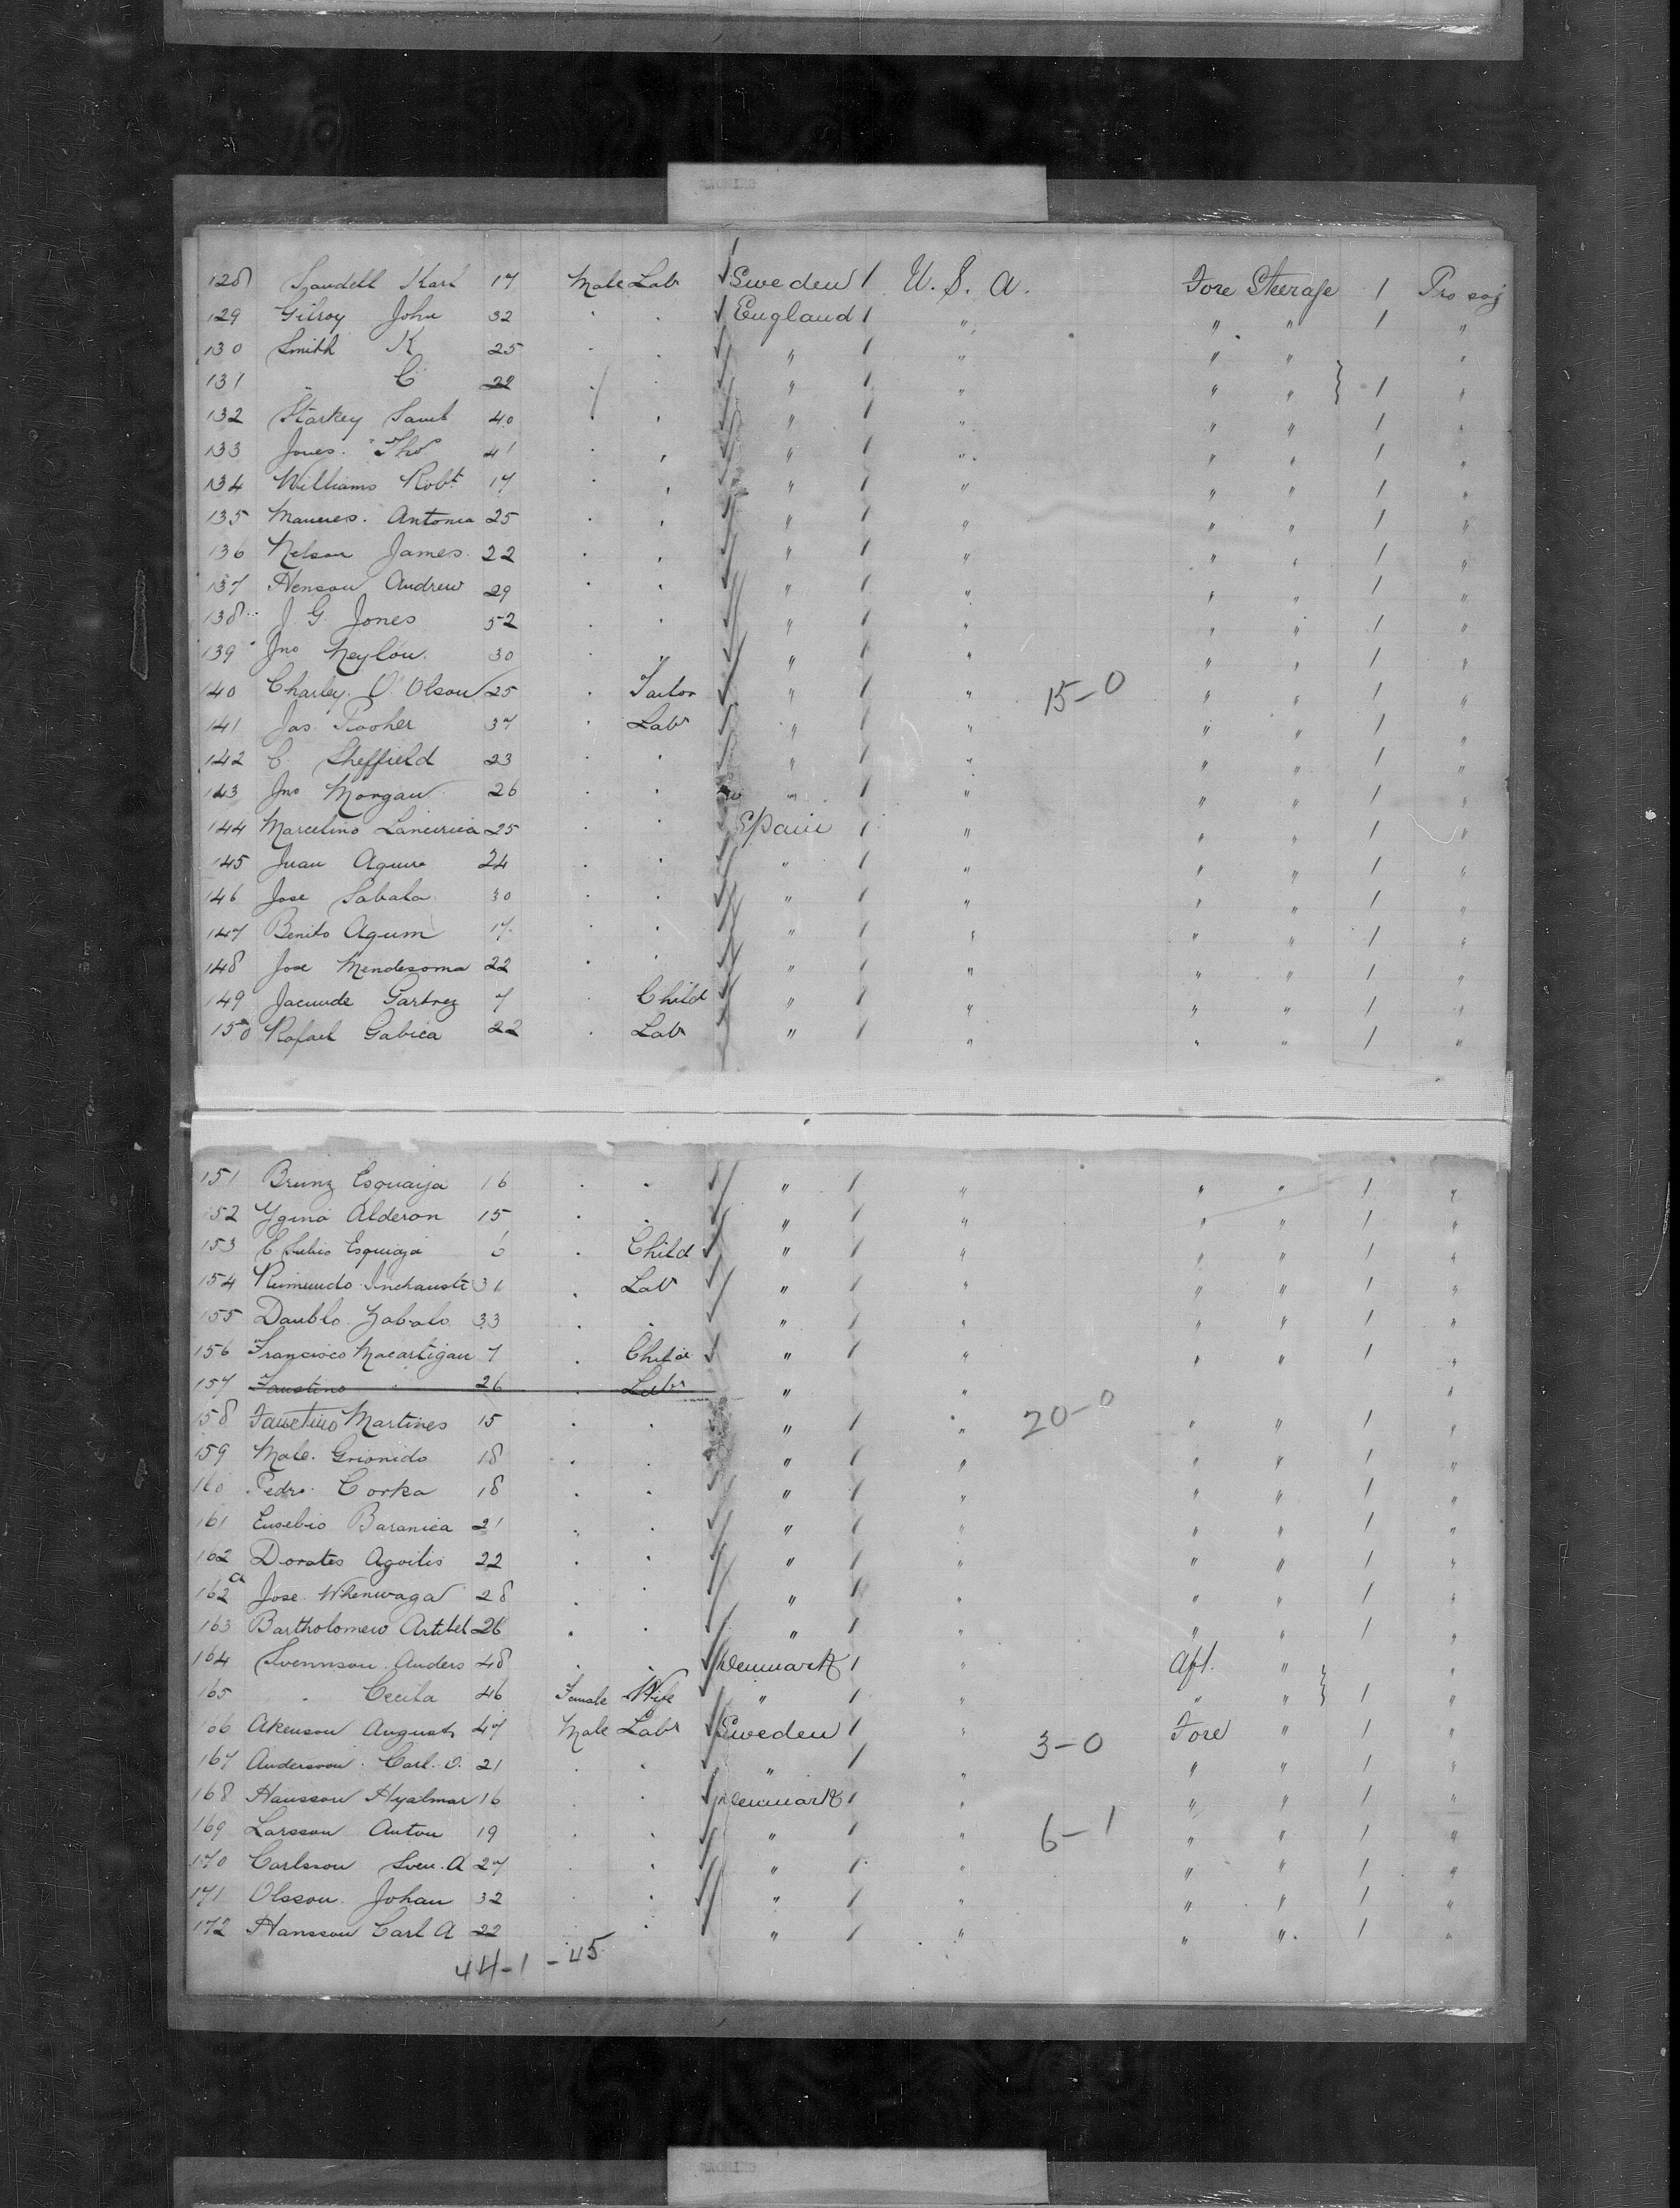 128 Sandell Karl 17 Male Lab Sweden 1 U. S. A. Fore Steerage 1 Pro soj
129 Gilroy John 32 . . England 1 " " " 1 "
130 Smith K 25 . . " 1 " " " "
131 " C 22 / . " 1 " " " } 1 "
132 Starkey Saml 40 . . " 1 " " " 1 "
133 Jones. Tho 41 . . " 1 " " " 1 "
134 Williams Robt 17 . . " 1 " " " 1 "
135 Antonia 25 . . " 1 " " " 1 "
136 Nelson James. 22 . . " 1 " " " 1 "
137 Henson Andrew 29 . . " 1 " " " 1 "
138 J. G. Jones 52 . . " 1 " " " 1 "
139 Jno Neylon. 30 . . " 1 " " " 1 "
140 Charley. O. Olson 25 . Tailor " 1 " 15-0 " " 1 "
141 Jas. 37 . Labr " 1 " " " 1 "
142 C. Sheffield 23 . . " 1 " " " 1 "
143 Jno Morgan 26 . . " 1 " " " 1 "
144 Marcelino 25 . . Spain 1 " " " 1 "
145 Juan Aguire 24 . . " 1 " " " 1 "
146 Jose Sabala 30 . . " 1 " " " 1 "
147 Benito Agum 17 . . " 1 " " " 1 "
148 Jose Mendesoma 22 . . " 1 " " " 1 "
149 7 . Child " 1 " " " 1 "
150 Rafael Gabica 22 . Labr " 1 " " " 1 "
151 16 . . " 1 " " " 1 "
152 Ygino Alderon 15 . . " 1 " " " 1 "
153 6 . Child " 1 " " " 1 "
154 Inchausti 31 . Labr " 1 " " " 1 "
155 33 . . " 1 " " " 1 "
156 Francisco Macartigan 7 . Child " 1 " " " 1 "
157 Faustino " 26 . Labr " " "
158 Faustino Martines 15 . . " 1 " 20-0 " " 1 "
159 Grionido 18 . . " 1 " " " 1 "
160 Pedro. Corka 18 . . " 1 " " " 1 "
161 Eusebio Baranica 21 . . " 1 " " " 1 "
162 Dorates Agvitis 22 . . " 1 " " " 1 "
162a Jose Whenwaga 28 . . " 1 " " " 1 "
163 Bartholomew Artibel 26 . . " 1 " " " 1 "
164 Svennson. Anders 48 . . Denmark 1 " Aft. "
165 " Cecila 46 Female Wife " 1 " " " } 1 "
166 Akenson August 47 Male Labr Sweden 1 " 3-0 Fore " 1 "
167 Andersson. Carl. O. 21 . . " 1 " " " 1 "
168 Hansson Hyalmar 16 . . Denmark 1 " " " 1 "
169 Larsson Anton 19 . . " 1 " 6-1 " " 1 "
170 Carlsson Sven. A 27 . . " 1 " " " 1 "
171 Olsson. Johan 32 . . " 1 " " " 1 "
172 Hansson Carl A 22 . . " 1 " " " 1 "
44-1-45